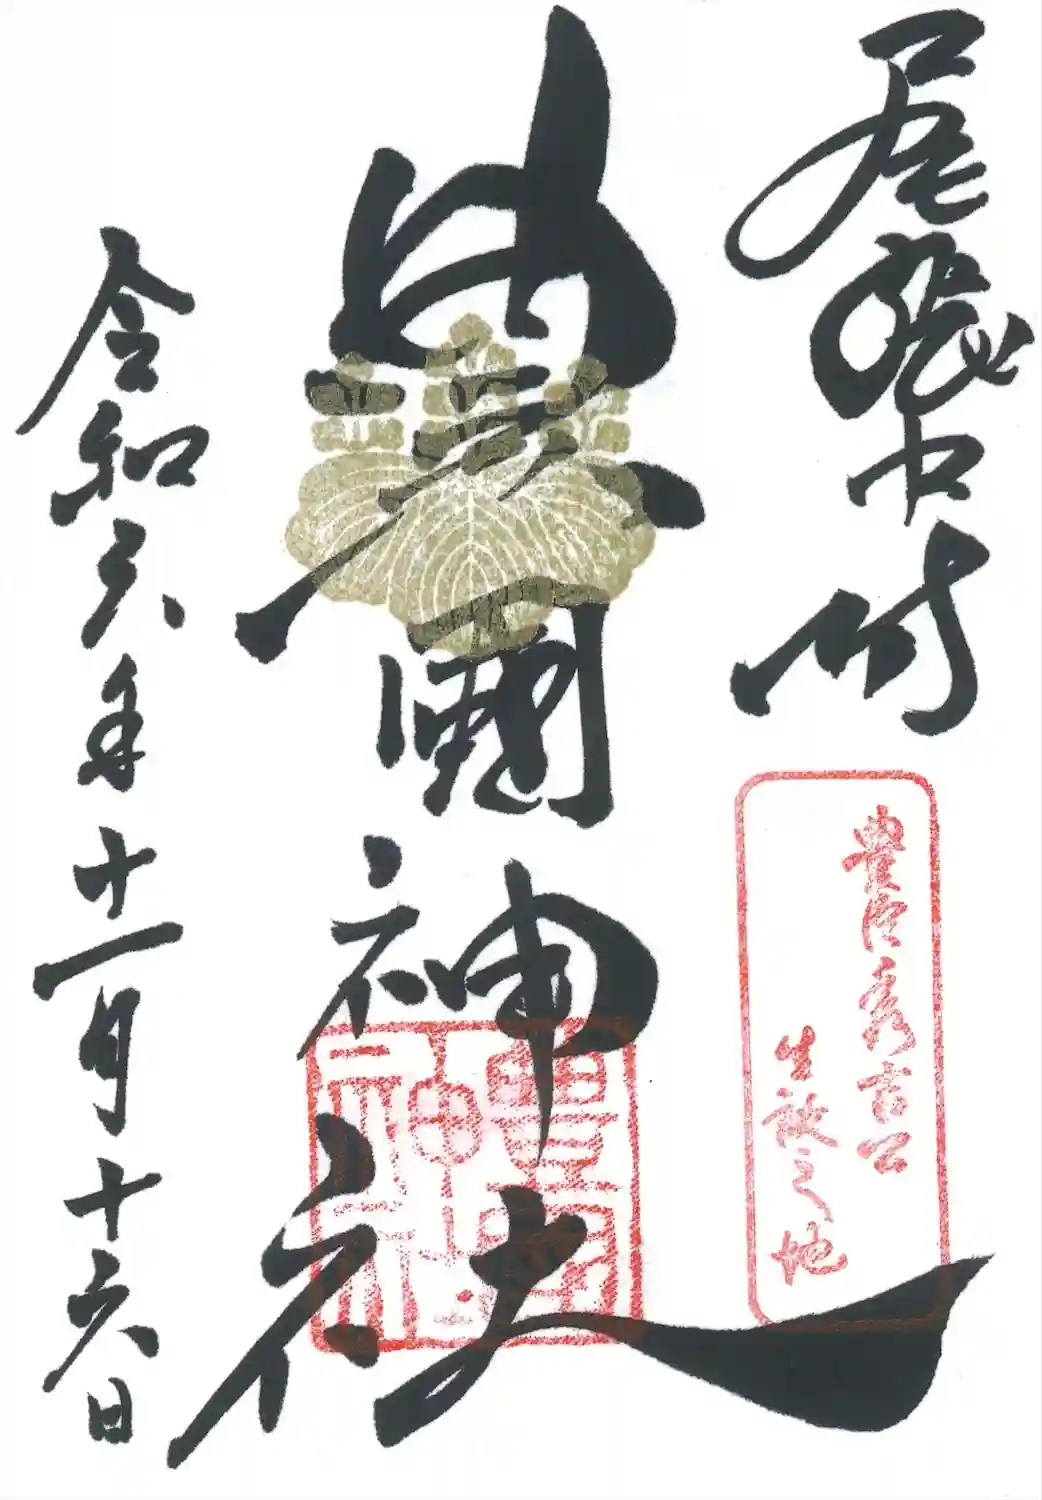 尾張中村
豊國神社
令和六年十一月十六日
豊臣秀吉公
生誕之地
豊國
神社